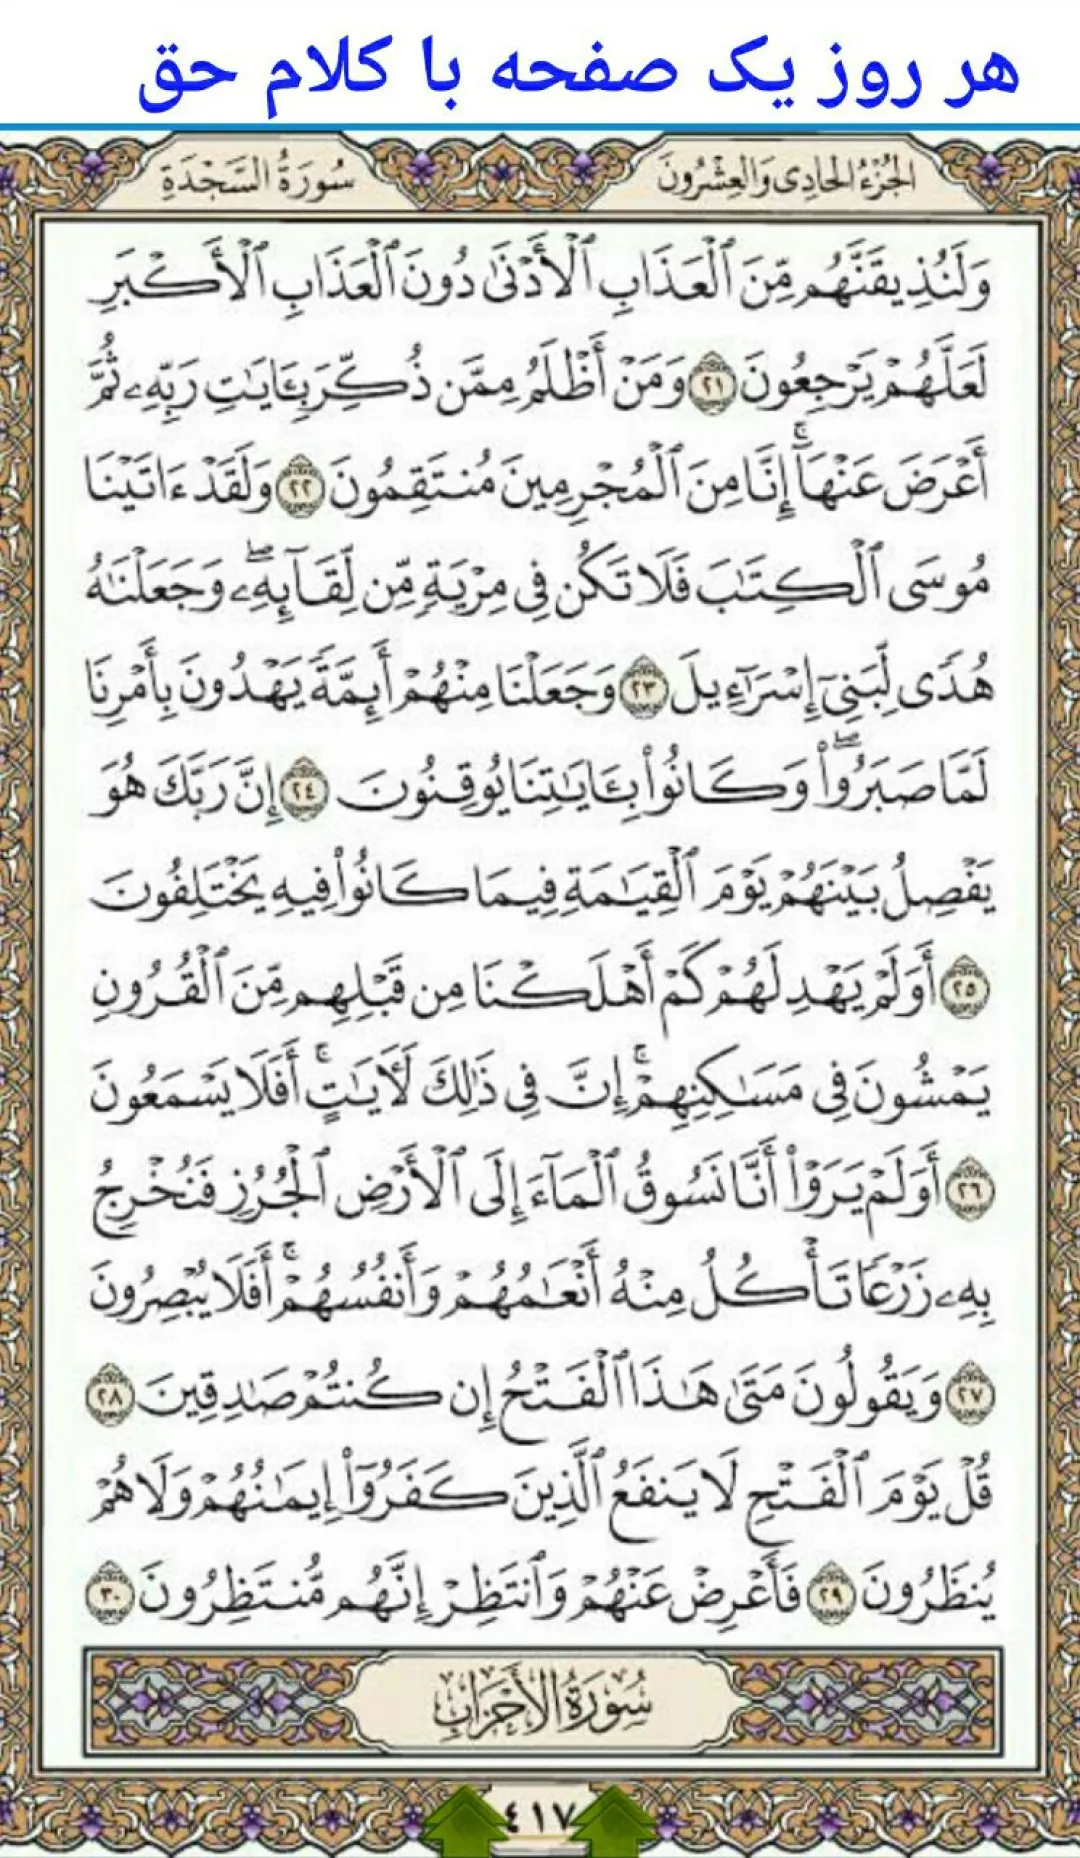 هر روز یک صفحه با کلام حق
الجُزْءُ الحَادِی وَالعِشْرُونَ
سُورَةُ السَّجْدَةِ
وَلَنُذِيقَنَّهُم مِّنَ ٱلْعَذَابِ ٱلْأَدْنَىٰ دُونَ ٱلْعَذَابِ ٱلْأَكْبَرِ
لَعَلَّهُمْ يَرْجِعُونَ ٢١ وَمَنْ أَظْلَمُ مِمَّن ذُكِّرَ بِـَٔايَـٰتِ رَبِّهِۦ ثُمَّ
أَعْرَضَ عَنْهَآ ۚ إِنَّا مِنَ ٱلْمُجْرِمِينَ مُنتَقِمُونَ ٢٢ وَلَقَدْ ءَاتَيْنَا
مُوسَى ٱلْكِتَـٰبَ فَلَا تَكُن فِى مِرْيَةٍ مِّن لِّقَآئِهِۦ ۖ وَجَعَلْنَـٰهُ
هُدًى لِّبَنِىٓ إِسْرَٰٓءِيلَ ٢٣ وَجَعَلْنَا مِنْهُمْ أَئِمَّةً يَهْدُونَ بِأَمْرِنَا
لَمَّا صَبَرُوا۟ ۖ وَكَانُوا۟ بِـَٔايَـٰتِنَا يُوقِنُونَ ٢٤ إِنَّ رَبَّكَ هُوَ
يَفْصِلُ بَيْنَهُمْ يَوْمَ ٱلْقِيَـٰمَةِ فِيمَا كَانُوا۟ فِيهِ يَخْتَلِفُونَ
٢٥ أَوَلَمْ يَهْدِ لَهُمْ كَمْ أَهْلَكْنَا مِن قَبْلِهِم مِّنَ ٱلْقُرُونِ
يَمْشُونَ فِى مَسَـٰكِنِهِمْ ۚ إِنَّ فِى ذَٰلِكَ لَـَٔايَـٰتٍ ۖ أَفَلَا يَسْمَعُونَ
٢٦ أَوَلَمْ يَرَوْا۟ أَنَّا نَسُوقُ ٱلْمَآءَ إِلَى ٱلْأَرْضِ ٱلْجُرُزِ فَنُخْرِجُ
بِهِۦ زَرْعًا تَأْكُلُ مِنْهُ أَنْعَـٰمُهُمْ وَأَنفُسُهُمْ ۚ أَفَلَا يُبْصِرُونَ
٢٧ وَيَقُولُونَ مَتَىٰ هَـٰذَا ٱلْفَتْحُ إِن كُنتُمْ صَـٰدِقِينَ ٢٨
قُلْ يَوْمَ ٱلْفَتْحِ لَا يَنفَعُ ٱلَّذِينَ كَفَرُوٓا۟ إِيمَـٰنُهُمْ وَلَا هُمْ
يُنظَرُونَ ٢٩ فَأَعْرِضْ عَنْهُمْ وَٱنتَظِرْ إِنَّهُم مُّنتَظِرُونَ ٣٠
سُورَةُ الأَحْزَابِ
٤١٧